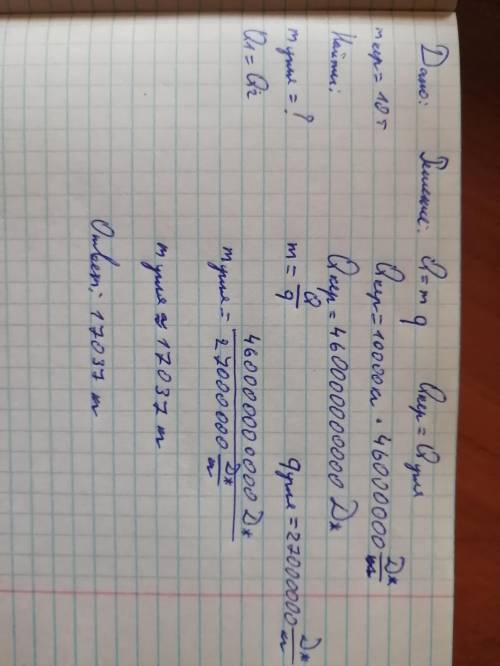 Дано:
mкер = 10 т
Найти:
m угля = ?
Q1 = Q2
Решение: Q = m q Qкер = Q угля
Qкер = 10000 кг · 46000000 Дж/кг
Qкер = 460000000000 Дж
m = Q/q q угля = 27000000 Дж/кг
m угля = 460000000000 Дж / 27000000 Дж/кг
m угля ≈ 17037 кг
Ответ: 17037 кг